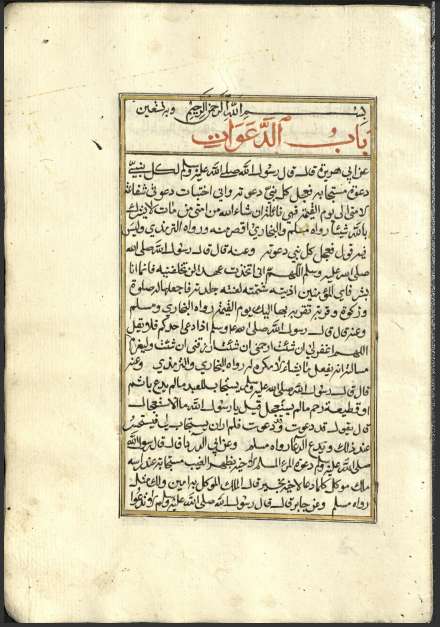 بسم الله الرحمن الرحيم وبه نستعين
باب الدعوات
عن ابي هريرة قال قال رسول الله صلى الله عليه وسلم لكل نبي
دعوة مستجابة فتعجل كل نبي دعوته واني اختبأت دعوتي شفاعة
لامتي الى يوم القيمة فهي نائلة ان شاء الله من مات من امتي لا يشرك
بالله شيئا رواه مسلم والبخاري اقصر منه ورواه الترمذي وليس
فيه قوله فتعجل كل نبي دعوته وعنه قال قال رسول الله صلى الله
صلى الله عليه وسلم اللهم اني اتخذت عندك عهدا لن تخلفنيه فانما انا
بشر فاي المؤمنين اذيته شتمته لعنته جلدته فاجعلها له صلوة
وزكوة وقربة تقربه بها اليك يوم القيمة رواه البخاري ومسلم
وعنه قال قال رسول الله صلى الله عليه وسلم اذا دعى احدكم فلا يقل
اللهم اغفر لي ان شئت ارحمني ان شئت ارزقني ان شئت وليعزم
مسألته انه يفعل ما يشاء لا مكره له رواه البخاري والترمذي وعنه
قال قال رسول الله صلى الله عليه وسلم يستجاب للعبد مالم يدع باثم
او قطيعة رحم مالم يستعجل قيل يا رسول الله ما الاستعجال
قال يقول قد دعوت وقد دعوت فلم ار ان يستجاب لي فيستحسر
عند ذلك ويدع الدعاء رواه مسلم وعن ابي الدرداء قال قال رسول الله
صلى الله عليه وسلم دعوة المرء المسلم لاخيه بظهر الغيب مستجابة عند رأسه
ملك موكل كلما دعا لاخيه بخير قال الملك الموكل به امين ولك بمثله
رواه مسلم وعن جابر قال قال رسول الله صلى الله عليه وسلم لا تدعوا